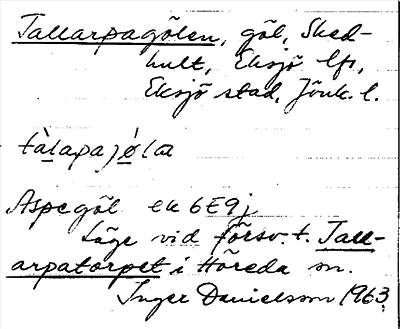 Tallarpagölen, göl, Sked-
hult, Eksjö lfs,
Eksjö stad, Jönk. l.
tàlapajø̀la
Aspegöl ek 6E9j
Läge vid försv. t. Tall-
arpatorpet i Höreda sn.
Inger Danielsson 1963